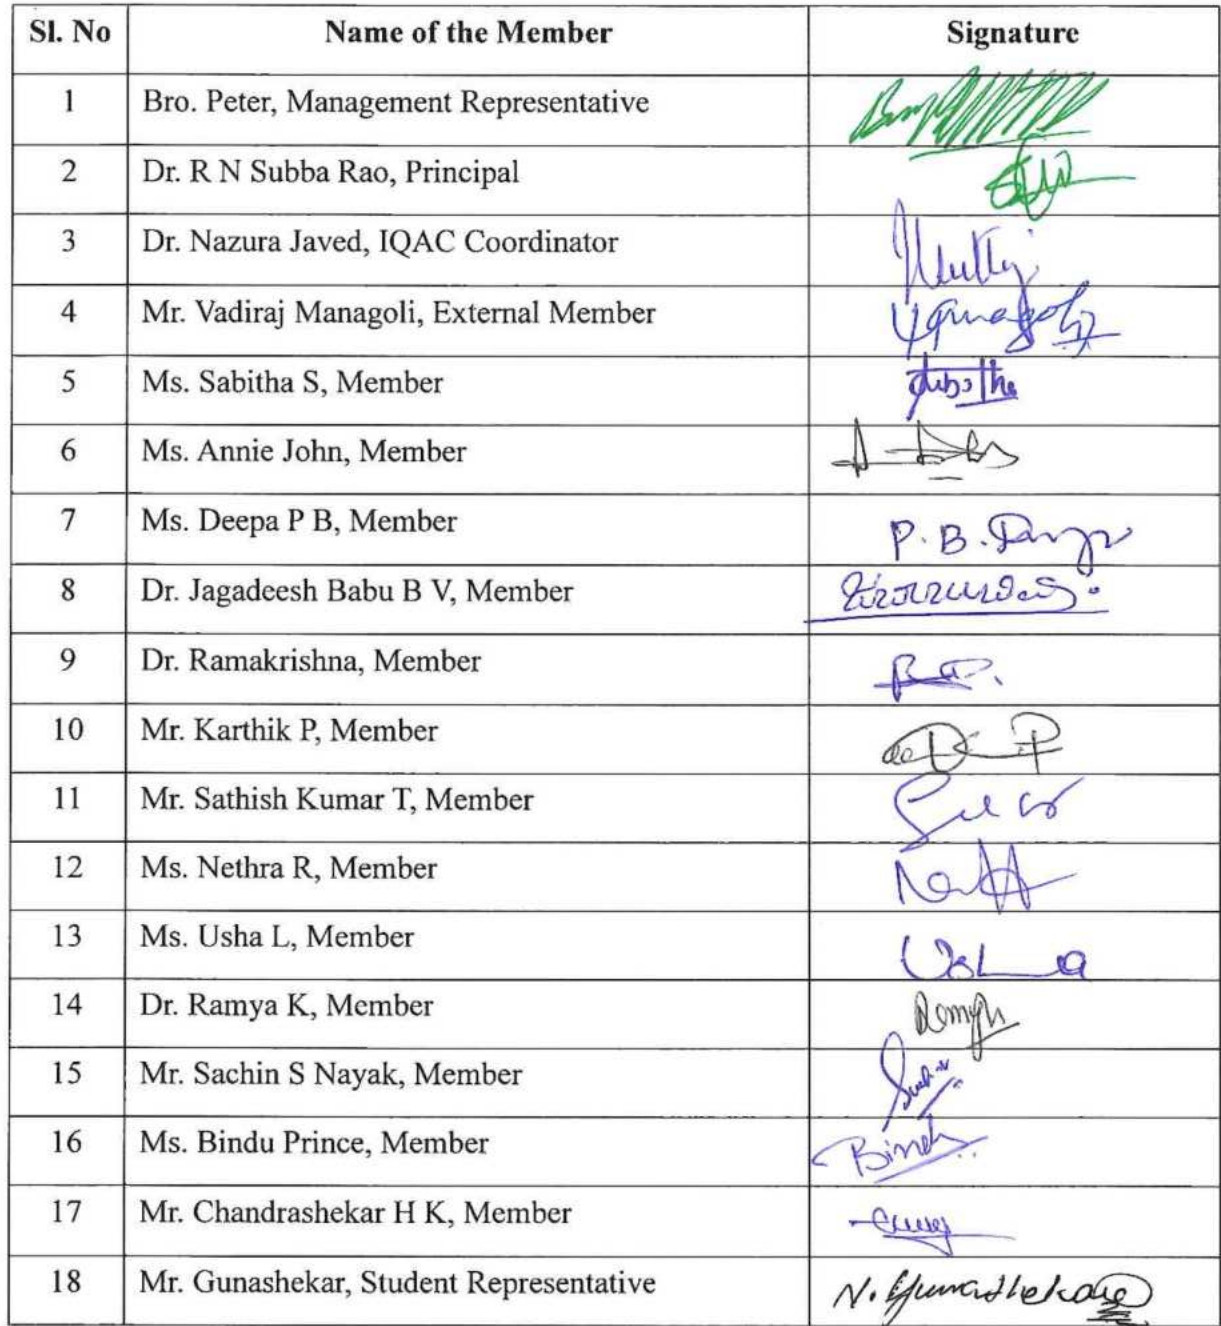 Sl. No Name of the Member Signature
1 Bro. Peter, Management Representative
2 Dr. R N Subba Rao, Principal
3 Dr. Nazura Javed, IQAC Coordinator
4 Mr. Vadiraj Managoli, External Member
5 Ms. Sabitha S, Member
6 Ms. Annie John, Member
7 Ms. Deepa P B, Member P. B.
8 Dr. Jagadeesh Babu B V, Member
9 Dr. Ramakrishna, Member
10 Mr. Karthik P, Member
11 Mr. Sathish Kumar T, Member
12 Ms. Nethra R, Member
13 Ms. Usha L, Member Usha
14 Dr. Ramya K, Member
15 Mr. Sachin S Nayak, Member
16 Ms. Bindu Prince, Member
17 Mr. Chandrashekar H K, Member
18 Mr. Gunashekar, Student Representative N. Gunashekar